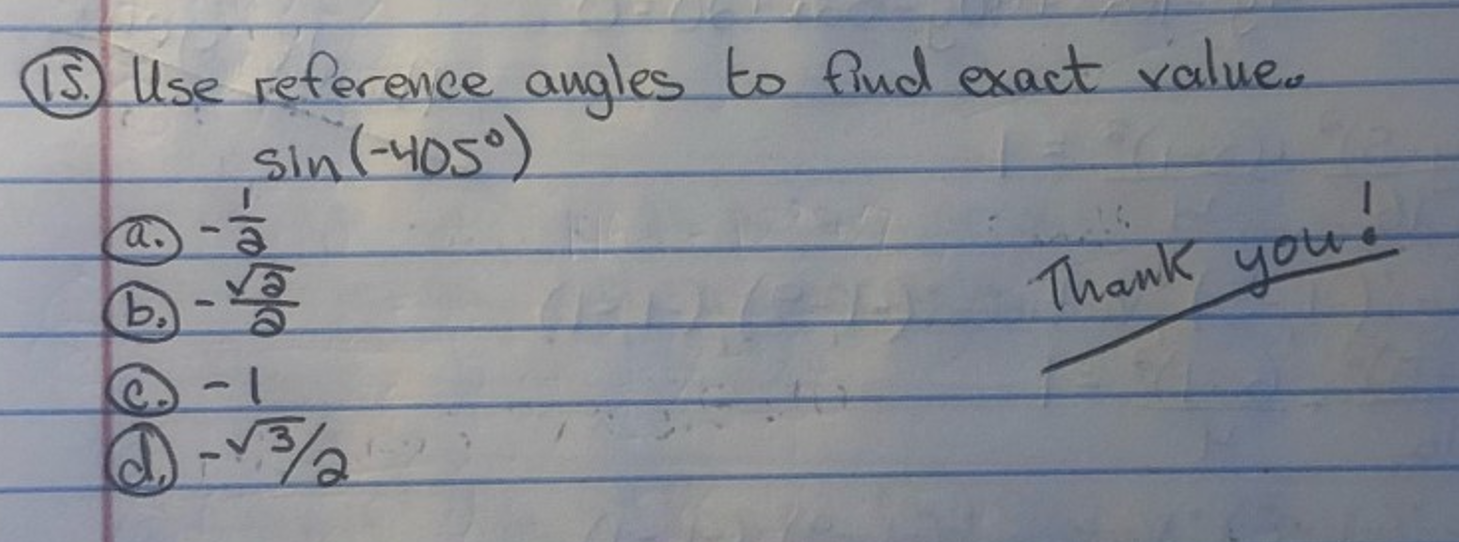 15. Use reference angles to find exact value.
sin(-405°)
a. -1/2
b. -√2/2
c. -1
d. -√3/2
Thank you!